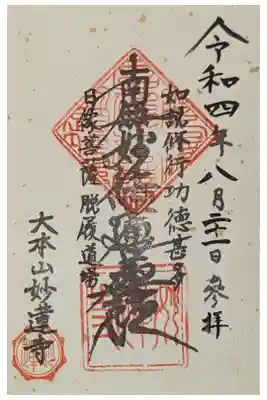 令和四年八月二十一日參拝
如説修行功徳甚多
南無妙法蓮華經
日像菩薩 脱履道場
大本山妙蓮寺